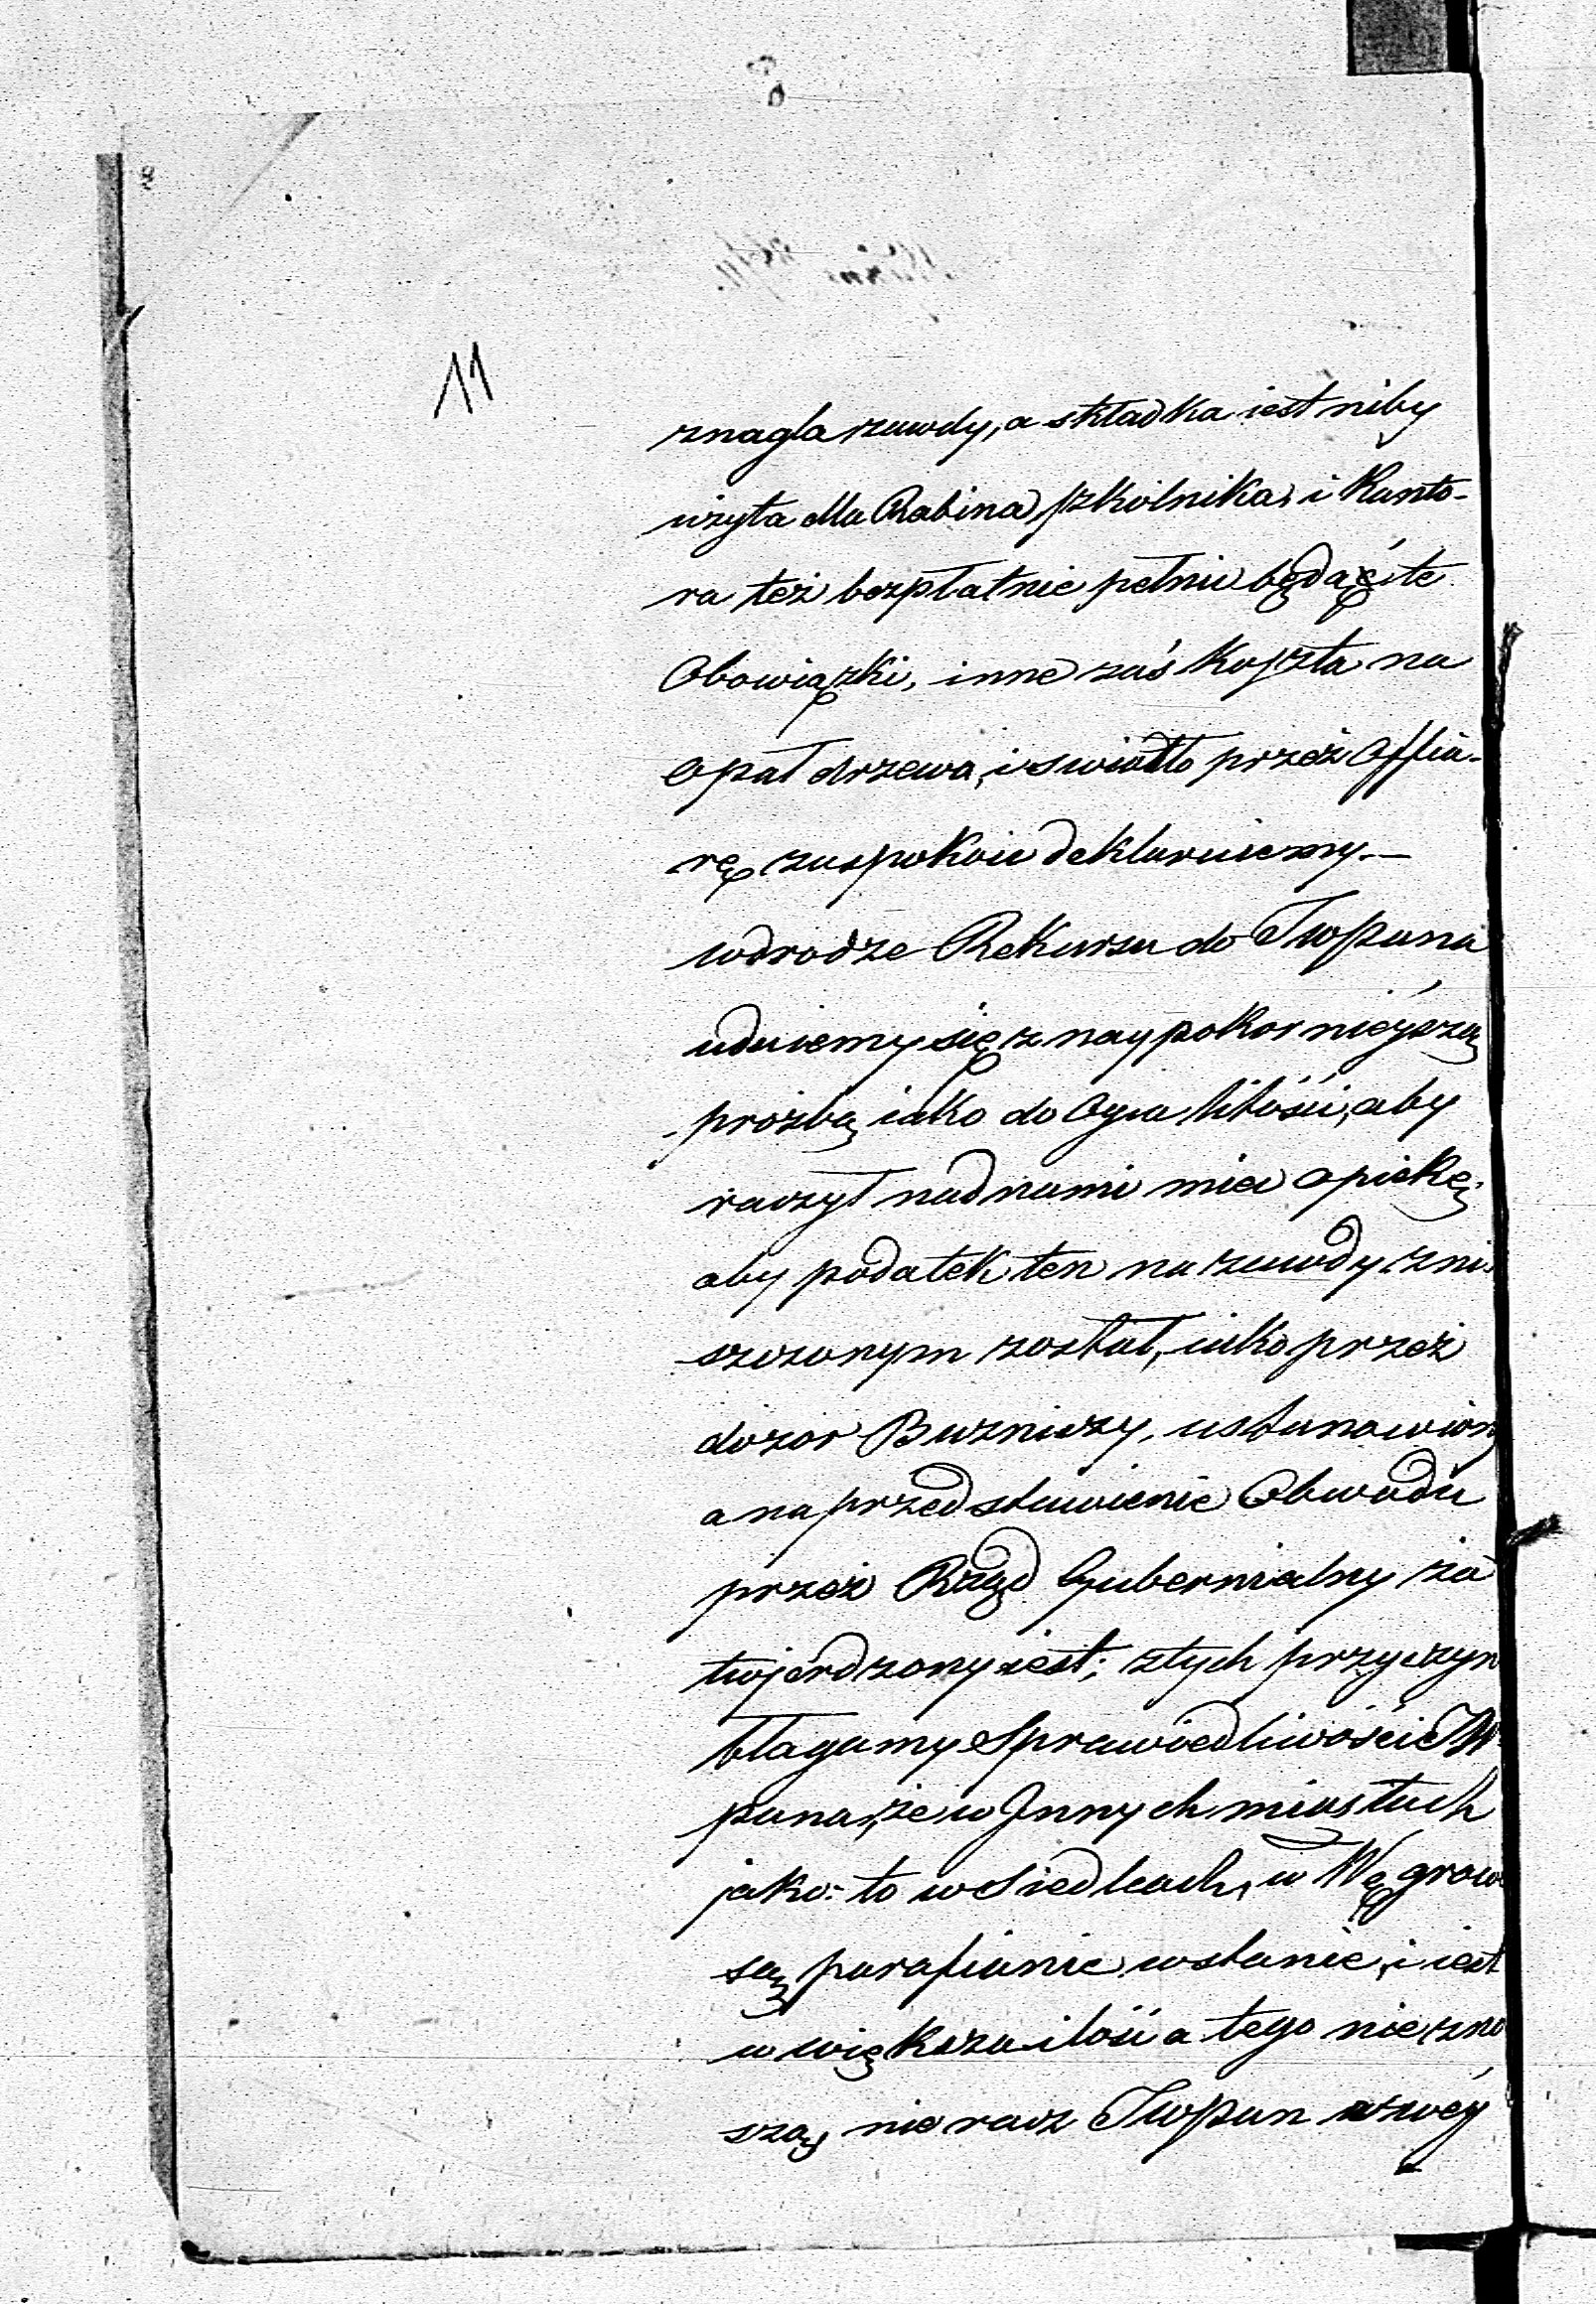 11
znagla zawdy, a składka iest niby
użyta dla Rabina szkolnika, i Kanto-
ra też bezpłatnie pełnić będąć te
Obowiązki, inne zaś Koszta na
opał drzewa, i swiatło przeź offia-
rę zaspokoić deklaruiemy.—
wdrodze Rekursu do JWPana
udaiemy się z naypokornieyszą
proźbą iako do Oyca litości, aby
raczył nad nami mieć opiekę,
aby podatek ten na zawdy zni-
szczonym został, iako przeź
dozor Bużniczy, ustanowiony
a na przedstawienie Obwodu
przeź Rząd Gubernialny za
twjerdzony iest; z tych przyczyn
błagamy Sprawiedliwości JW
pana, że w Innych miastach
jako: to w Siedlcach, w Węgrowie
są parafianie wstanie, i iest
w większa ilość a tego nie zno
szą, nie racz JWPan wswéy